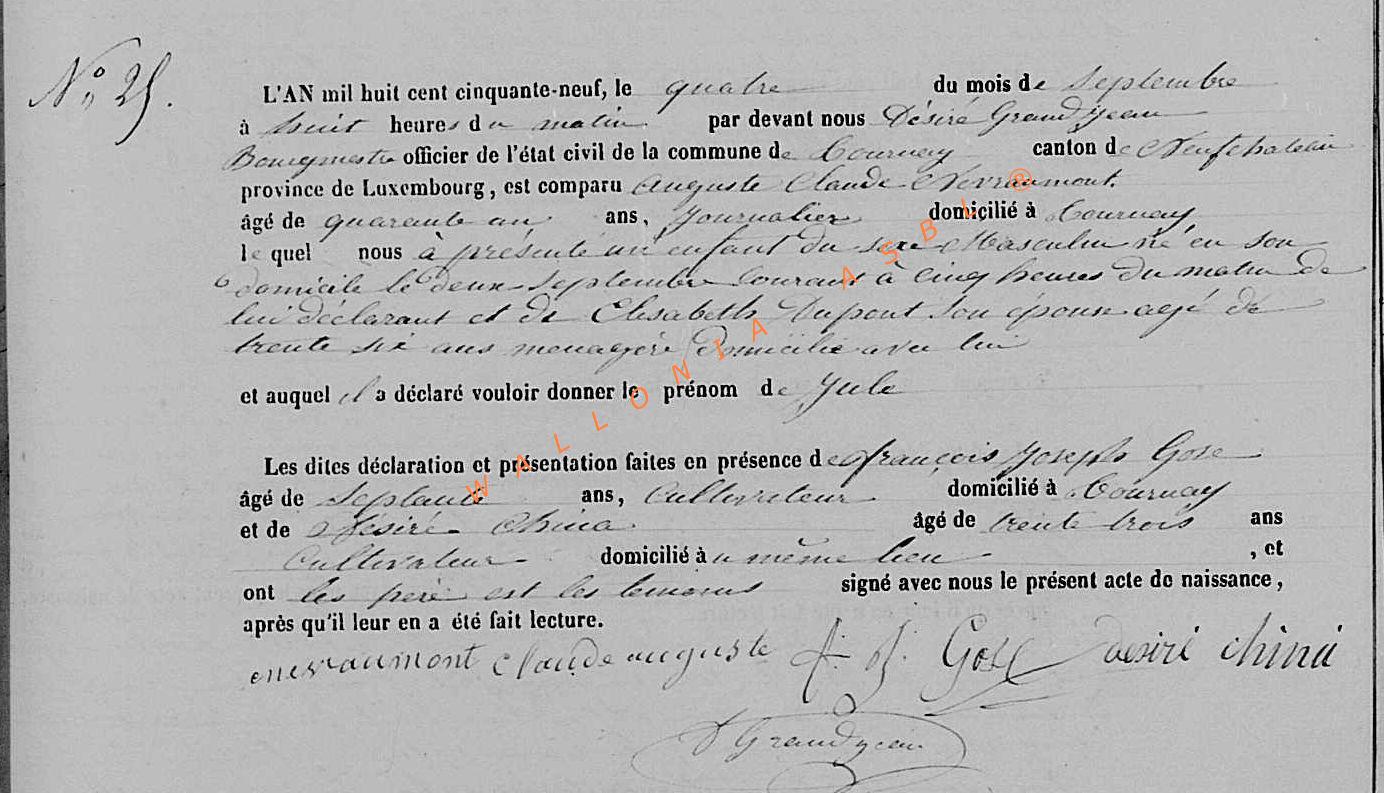 No 25.
L'AN mil huit cent cinquante-neuf, le quatre du mois de Septembre
à huit heures du matin par devant nous Désiré Grandjean
Bourgmestre officier de l'état civil de la commune de Tournay canton de Neufchateau
province de Luxembourg, est comparu Auguste Claude Nevraumont.
âgé de quarante un ans, journalier domicilié à Tournay
le quel nous à présenté un enfant du sexe Masculin né en son
domicile le deux Septembre Courant à Cinq heures du matin de
lui déclarant et de Elisabeth Dupont son épouse agé de
trente six ans menagère domicilié avec lui
et auquel il a déclaré vouloir donner le prénom de Jule
Les dites déclaration et présentation faites en présence de françois Joseph Gose
âgé de Septante ans, Cultivateur domicilié à Tournay
et de Désiré China âgé de trente trois ans
Cultivateur domicilié au même lieu , et
ont les père est les temoins signé avec nous le présent acte de naissance,
après qu'il leur en a été fait lecture.
nevraumont claude auguste f. j. Gose desiré china
D Grandjean
WALLONIA ASBL ®